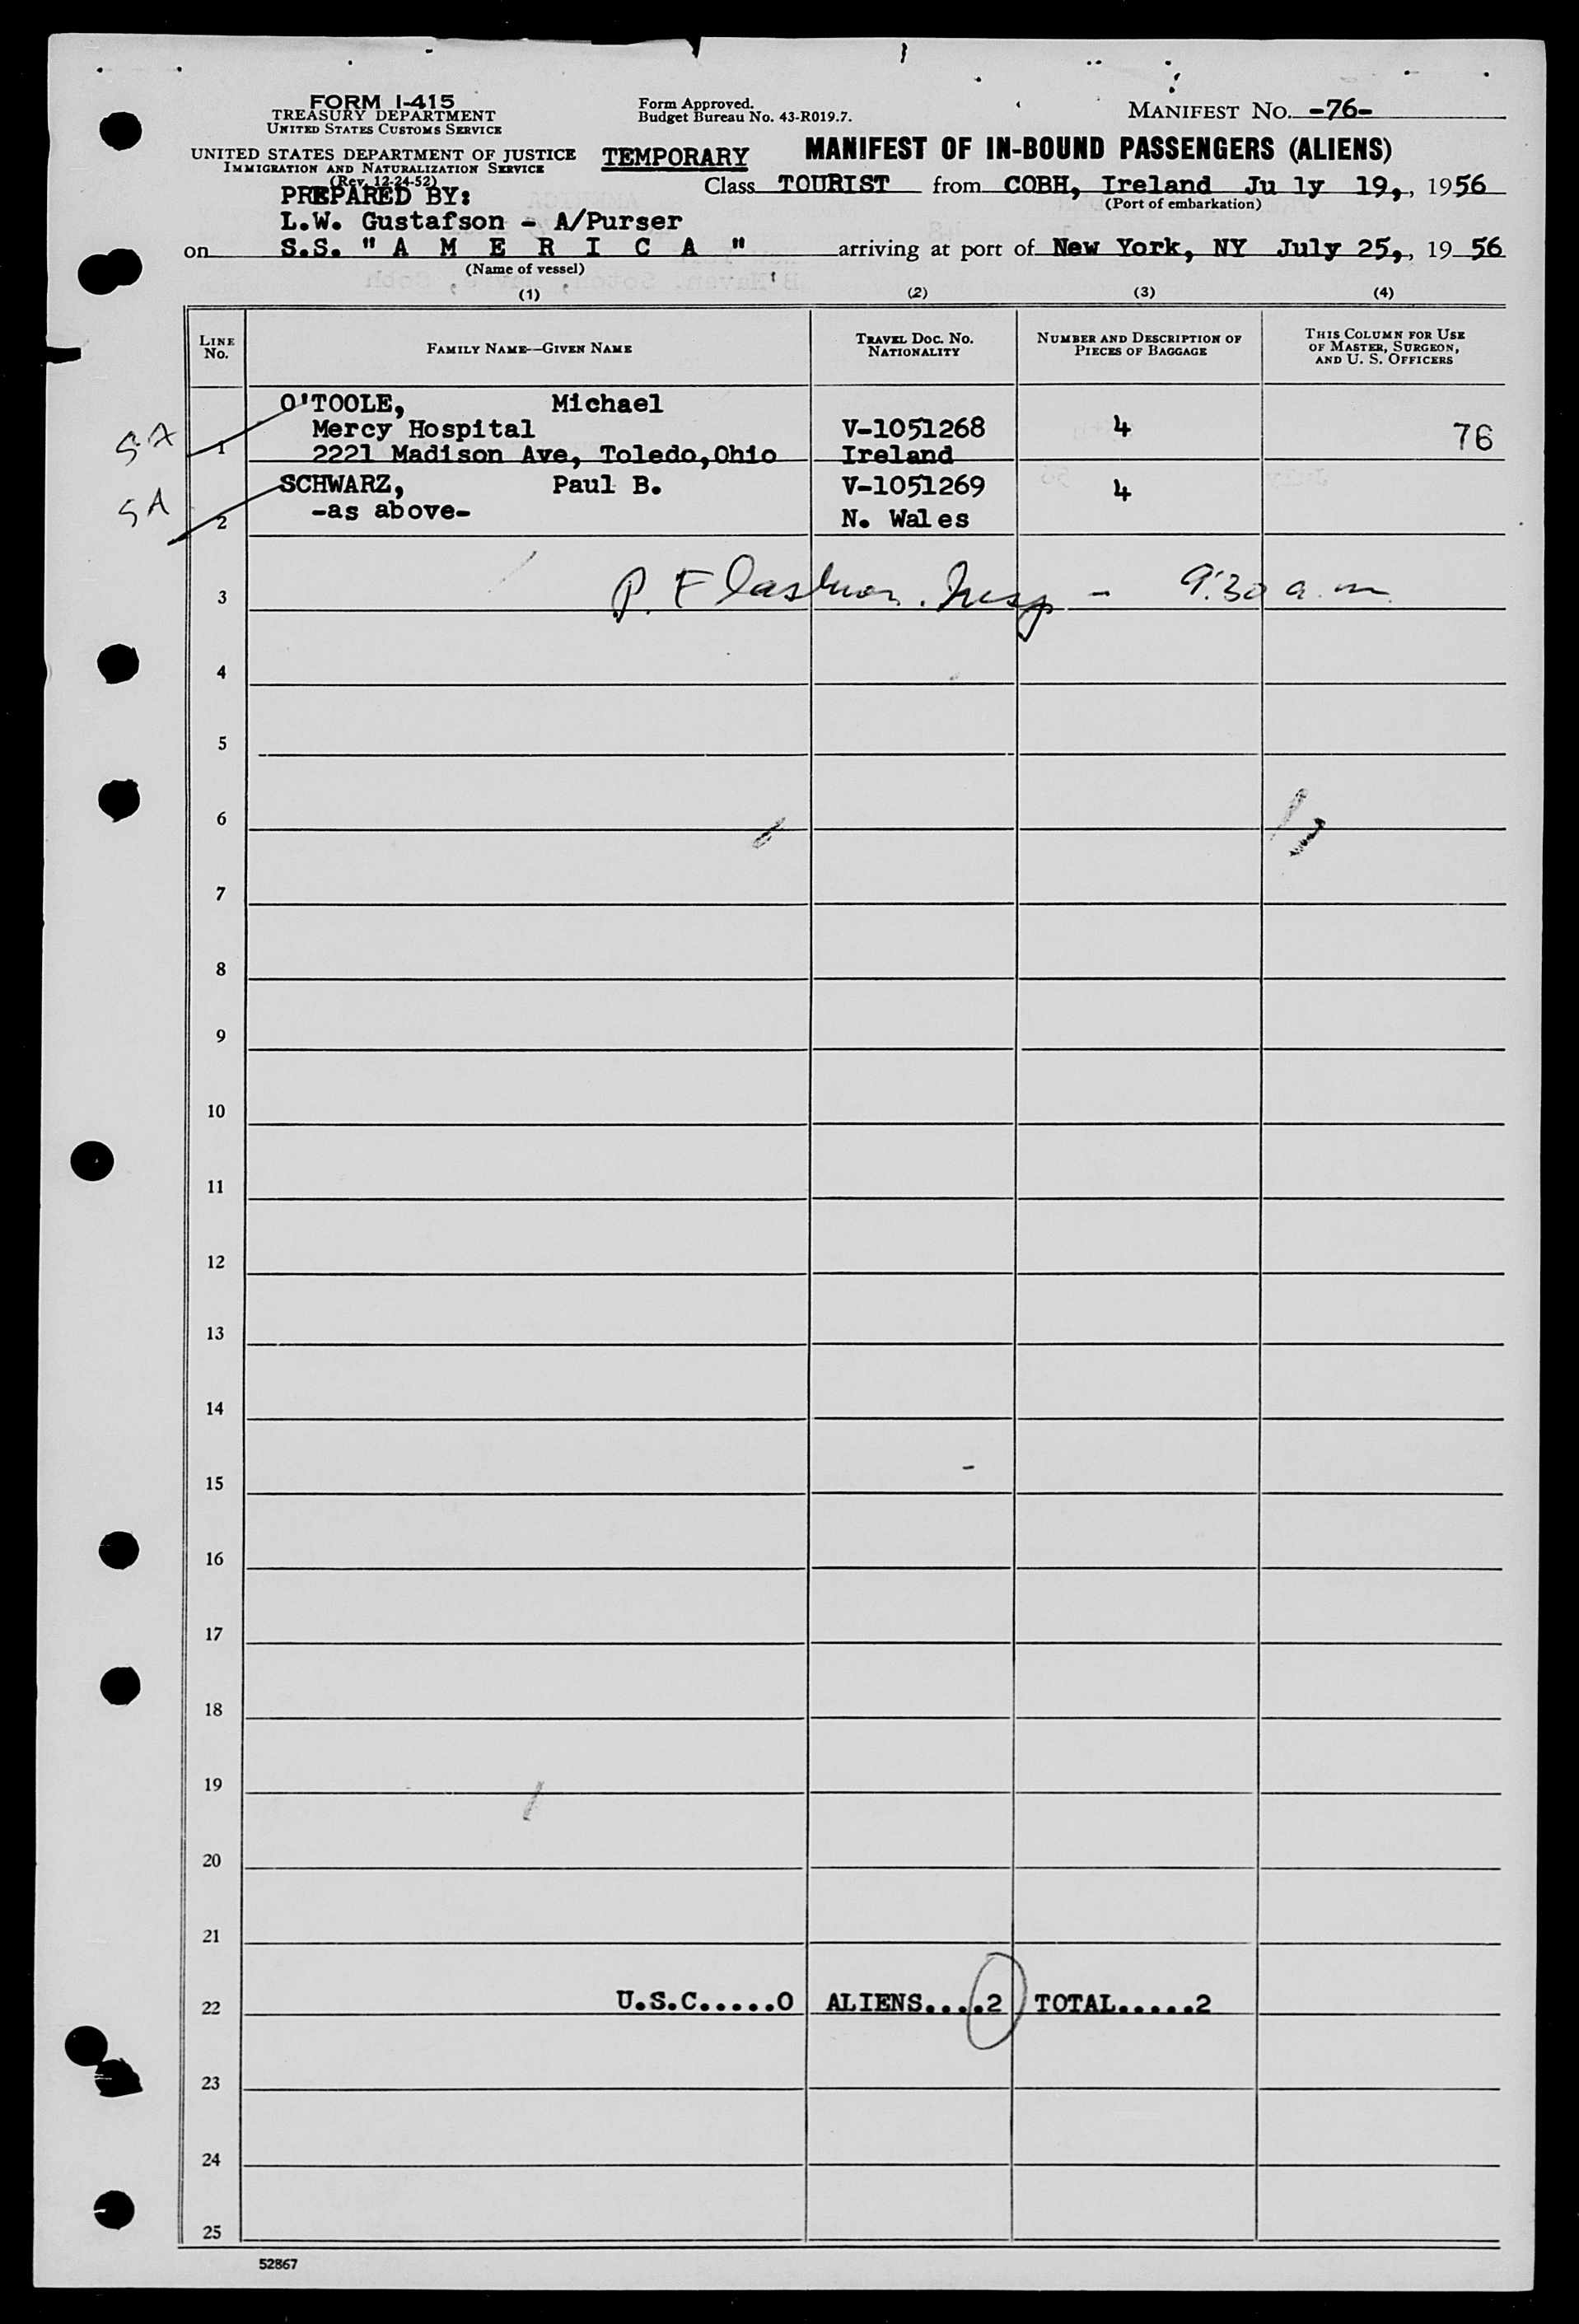 FORM I-415
TREASURY DEPARTMENT
UNITED STATES CUSTOMS SERVICE
Form Approved.
Budget Bureau No. 43-R019.7.
MANIFEST NO. -76-
UNITED STATES DEPARTMENT OF JUSTICE
IMMIGRATION AND NATURALIZATION SERVICE
(Rev. 12-24-52)
TEMPORARY MANIFEST OF IN-BOUND PASSENGERS (ALIENS)
PREPARED BY:
Class TOURIST from COBH, Ireland Ju ly 19,, 1956
(Port of embarkation)
L.W. Gustafson - A/Purser
on S.S. " A M E R I C A " arriving at port of New York, NY July 25,, 19 56
(Name of vessel)
(1) (2) (3) (4)
LINE No.
FAMILY NAME—GIVEN NAME
TRAVEL DOC. NO. NATIONALITY
NUMBER AND DESCRIPTION OF PIECES OF BAGGAGE
THIS COLUMN FOR USE OF MASTER, SURGEON, AND U. S. OFFICERS
O'TOOLE, Michael
SA Mercy Hospital V-1051268 4 76
1 2221 Madison Ave, Toledo,Ohio Ireland
SCHWARZ, Paul B. V-1051269 4
SA -as above-
2 N. Wales
3 P. - 9:30 a.m.
4
5
6
7
8
9
10
11
12
13
14
15
16
17
18
19
20
21
22 U.S.C.....0 ALIENS....2 TOTAL.....2
23
24
25
52867